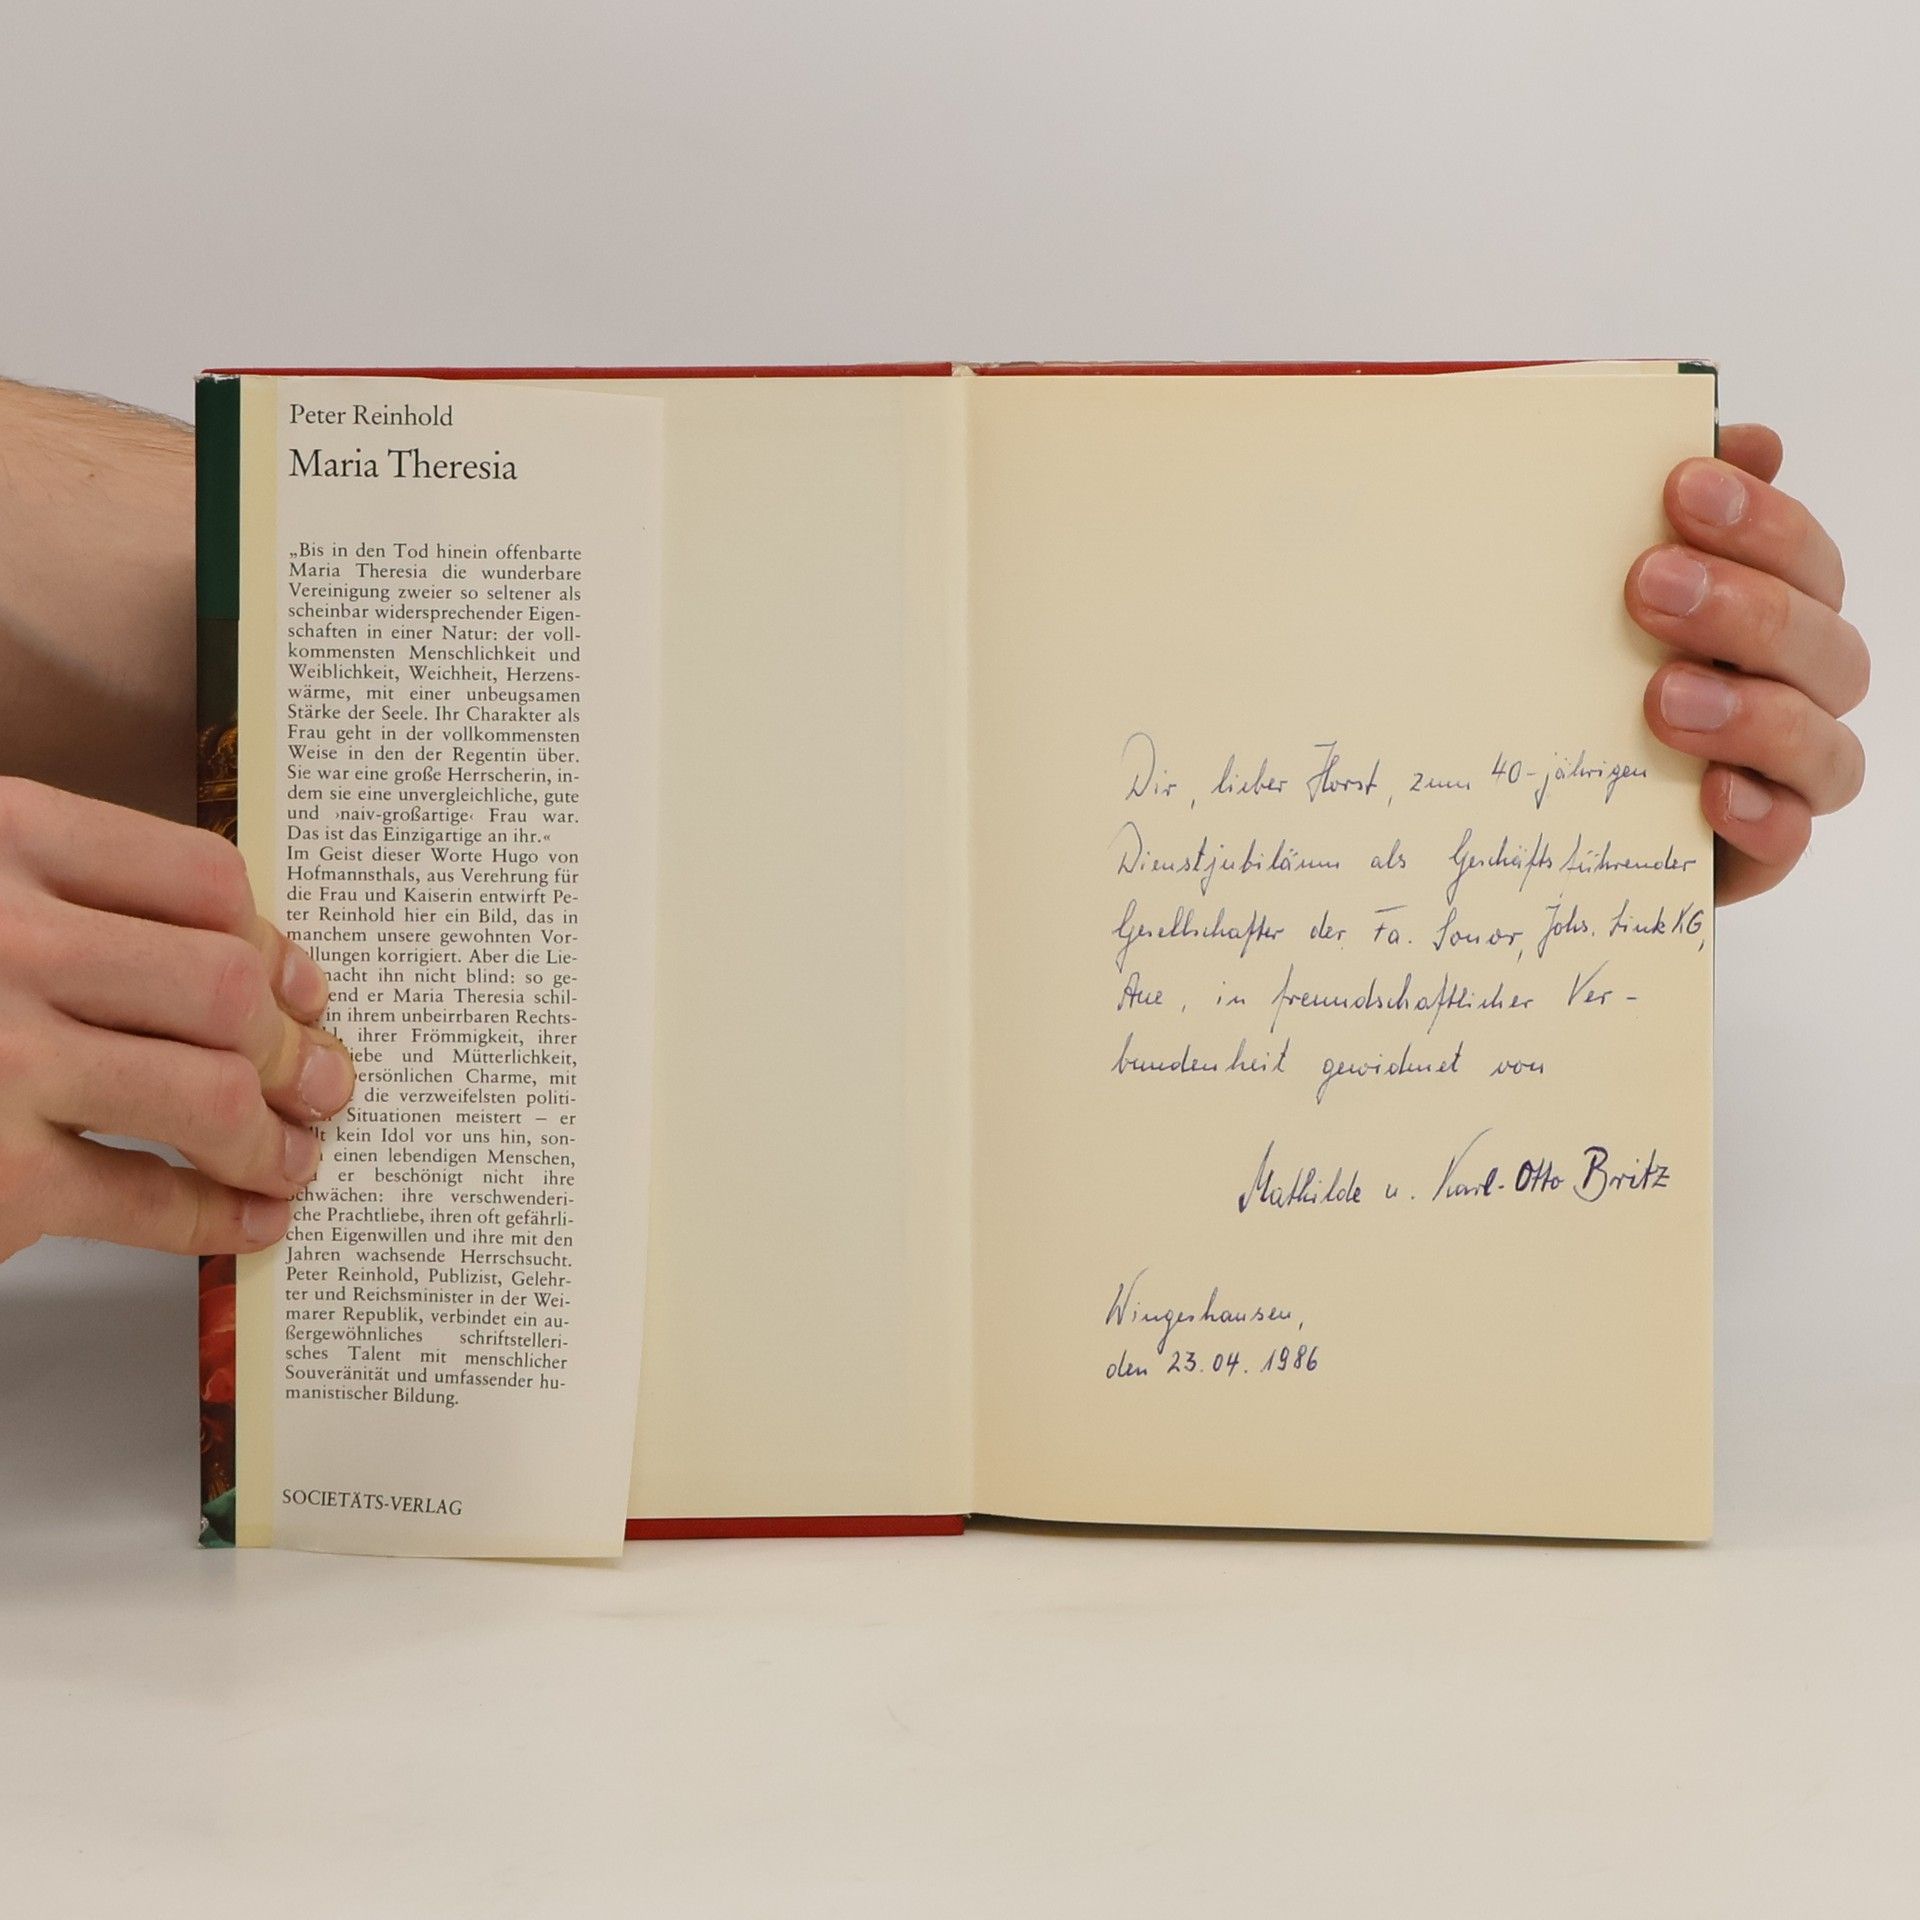 Peter Reinhold
Maria Theresia
„Bis in den Tod hinein offenbarte
Maria Theresia die wunderbare
Vereinigung zweier so seltener als
scheinbar widersprechender Eigen-
schaften in einer Natur: der voll-
kommensten Menschlichkeit und
Weiblichkeit, Weichheit, Herzens-
wärme, mit einer unbeugsamen
Stärke der Seele. Ihr Charakter als
Frau geht in der vollkommensten
Weise in den der Regentin über.
Sie war eine große Herrscherin, in-
dem sie eine unvergleichliche, gute
und ›naiv-großartige‹ Frau war.
Das ist das Einzigartige an ihr.«
Im Geist dieser Worte Hugo von
Hofmannsthals, aus Verehrung für
die Frau und Kaiserin entwirft Pe-
ter Reinhold hier ein Bild, das in
manchem unsere gewohnten Vor-
llungen korrigiert. Aber die Lie-
macht ihn nicht blind: so ge-
end er Maria Theresia schil-
in ihrem unbeirrbaren Rechts-
ihrer Frömmigkeit, ihrer
iebe und Mütterlichkeit,
ersönlichen Charme, mit
die verzweifelsten politi-
Situationen meistert – er
llt kein Idol vor uns hin, son-
einen lebendigen Menschen,
er beschönigt nicht ihre
Schwächen: ihre verschwenderi-
sche Prachtliebe, ihren oft gefährli-
chen Eigenwillen und ihre mit den
Jahren wachsende Herrschsucht.
Peter Reinhold, Publizist, Gelehr-
ter und Reichsminister in der Wei-
marer Republik, verbindet ein au-
ßergewöhnliches schriftstelleri-
sches Talent mit menschlicher
Souveränität und umfassender hu-
manistischer Bildung.
SOCIETÄTS-VERLAG
Dir, lieber Horst, zum 40-jährigen
Dienstjubiläum als Geschäftsführender
Gesellschafter der Fa. Sonor, Johs. Link KG,
Aue, in freundschaftlicher Ver-
bundenheit gewidmet von
Mathilde u. Karl-Otto Britz
Wingeshausen,
den 23.04.1986